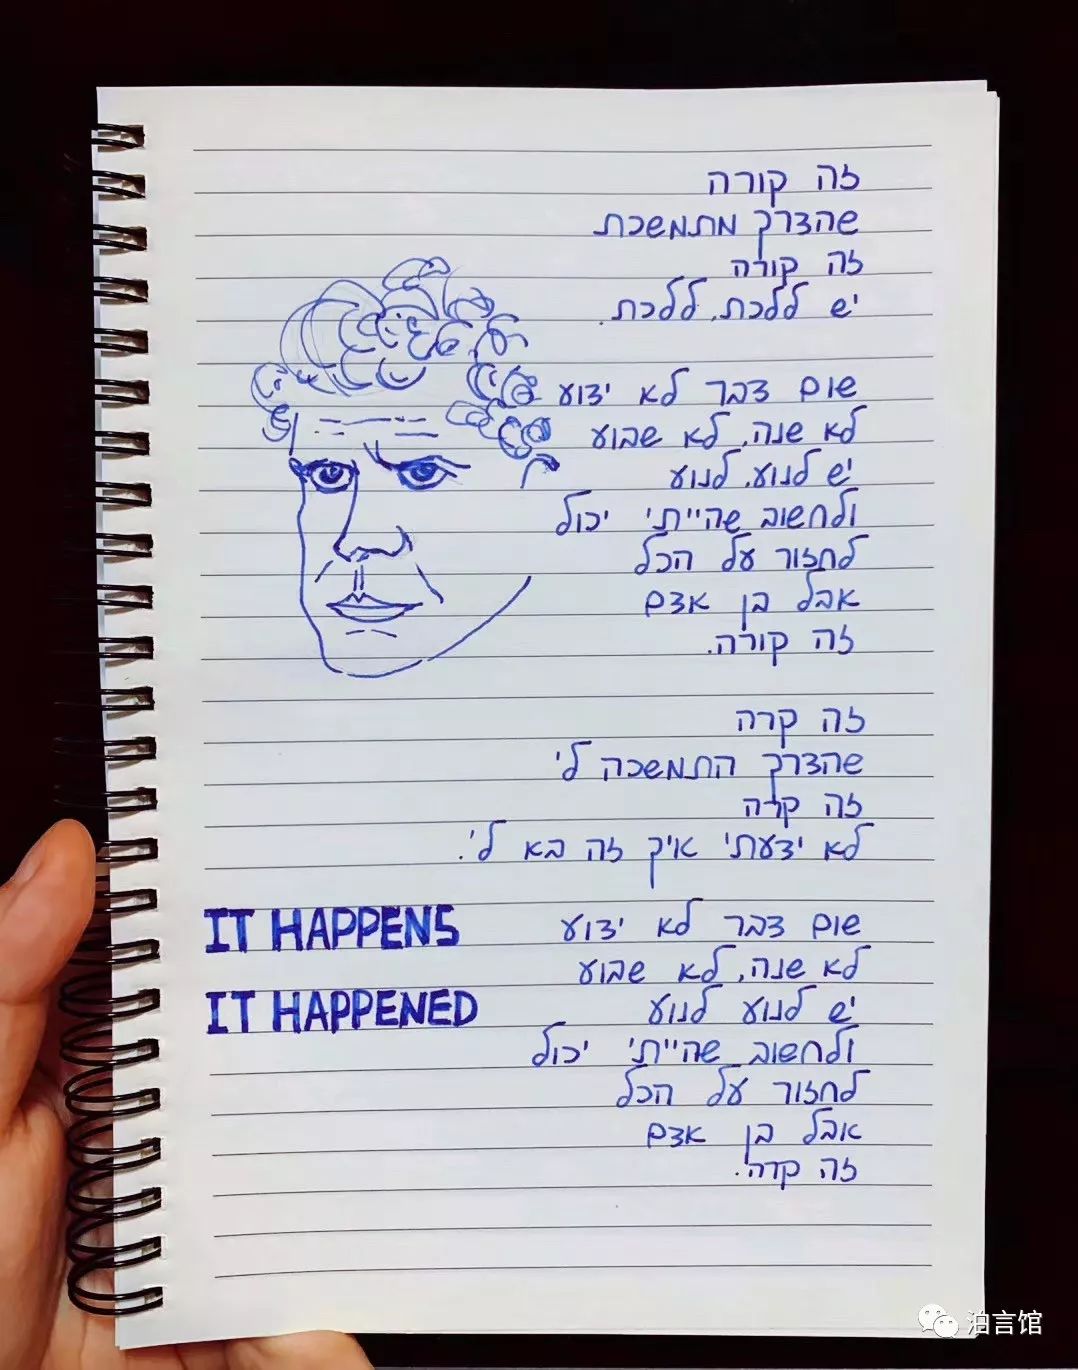 זה קורה
שהדרך מתמשכת
זה קורה
יש ללכת, ללכת.
שום דבר לא ידוע
לא שנה, לא שבוע
יש לנוע, לנוע
ולחשוב שהייתי יכול
לחזור על הכל
אבל בן אדם
זה קורה.
זה קרה
שהדרך התמשכה לי
זה קרה
לא ידעתי איך זה בא לי.
שום דבר לא ידוע
לא שנה, לא שבוע
יש לנוע לנוע
ולחשוב שהייתי יכול
לחזור על הכל
אבל בן אדם
זה קרה.
IT HAPPENS
IT HAPPENED
泊言馆